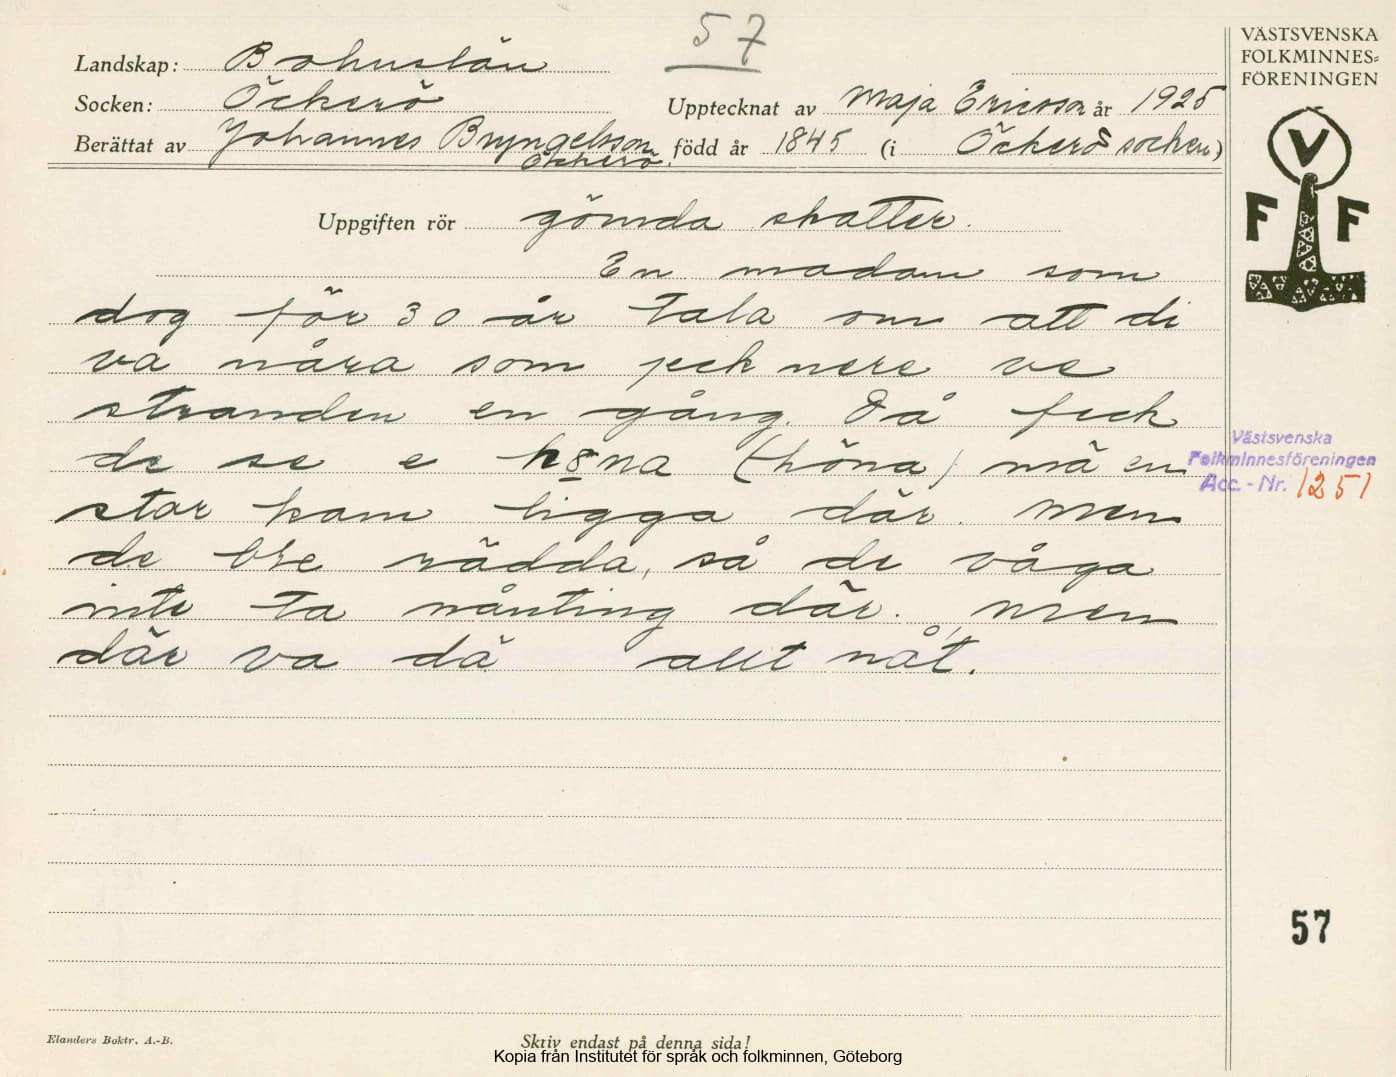 57
VÄSTSVENSKA
FOLKMINNES=
FÖRENINGEN
Landskap: Bohuslän
Socken: Öckerö
Upptecknat av Maja Ericson år 1925
Berättat av Johannes Bryngelsson född år 1845 (i Öckerö socken)
Öckerö.
V
F F
Uppgiften rör gömda skatter.
En madam som
dog för 30 år tala om att di
va nåra som jeck nere ve
stranden en gång. Då feck
de se e h8na (höna) mä en
stor kam ligga där. Men
de ble rädda, så de våga
inte ta nånting där. Men
där va då allt nåt.
Västsvenska
Folkminnesföreningen
Acc.-Nr. 1251
57
Elanders Boktr. A.-B.
Skriv endast på denna sida!
Kopia från Institutet för språk och folkminnen, Göteborg